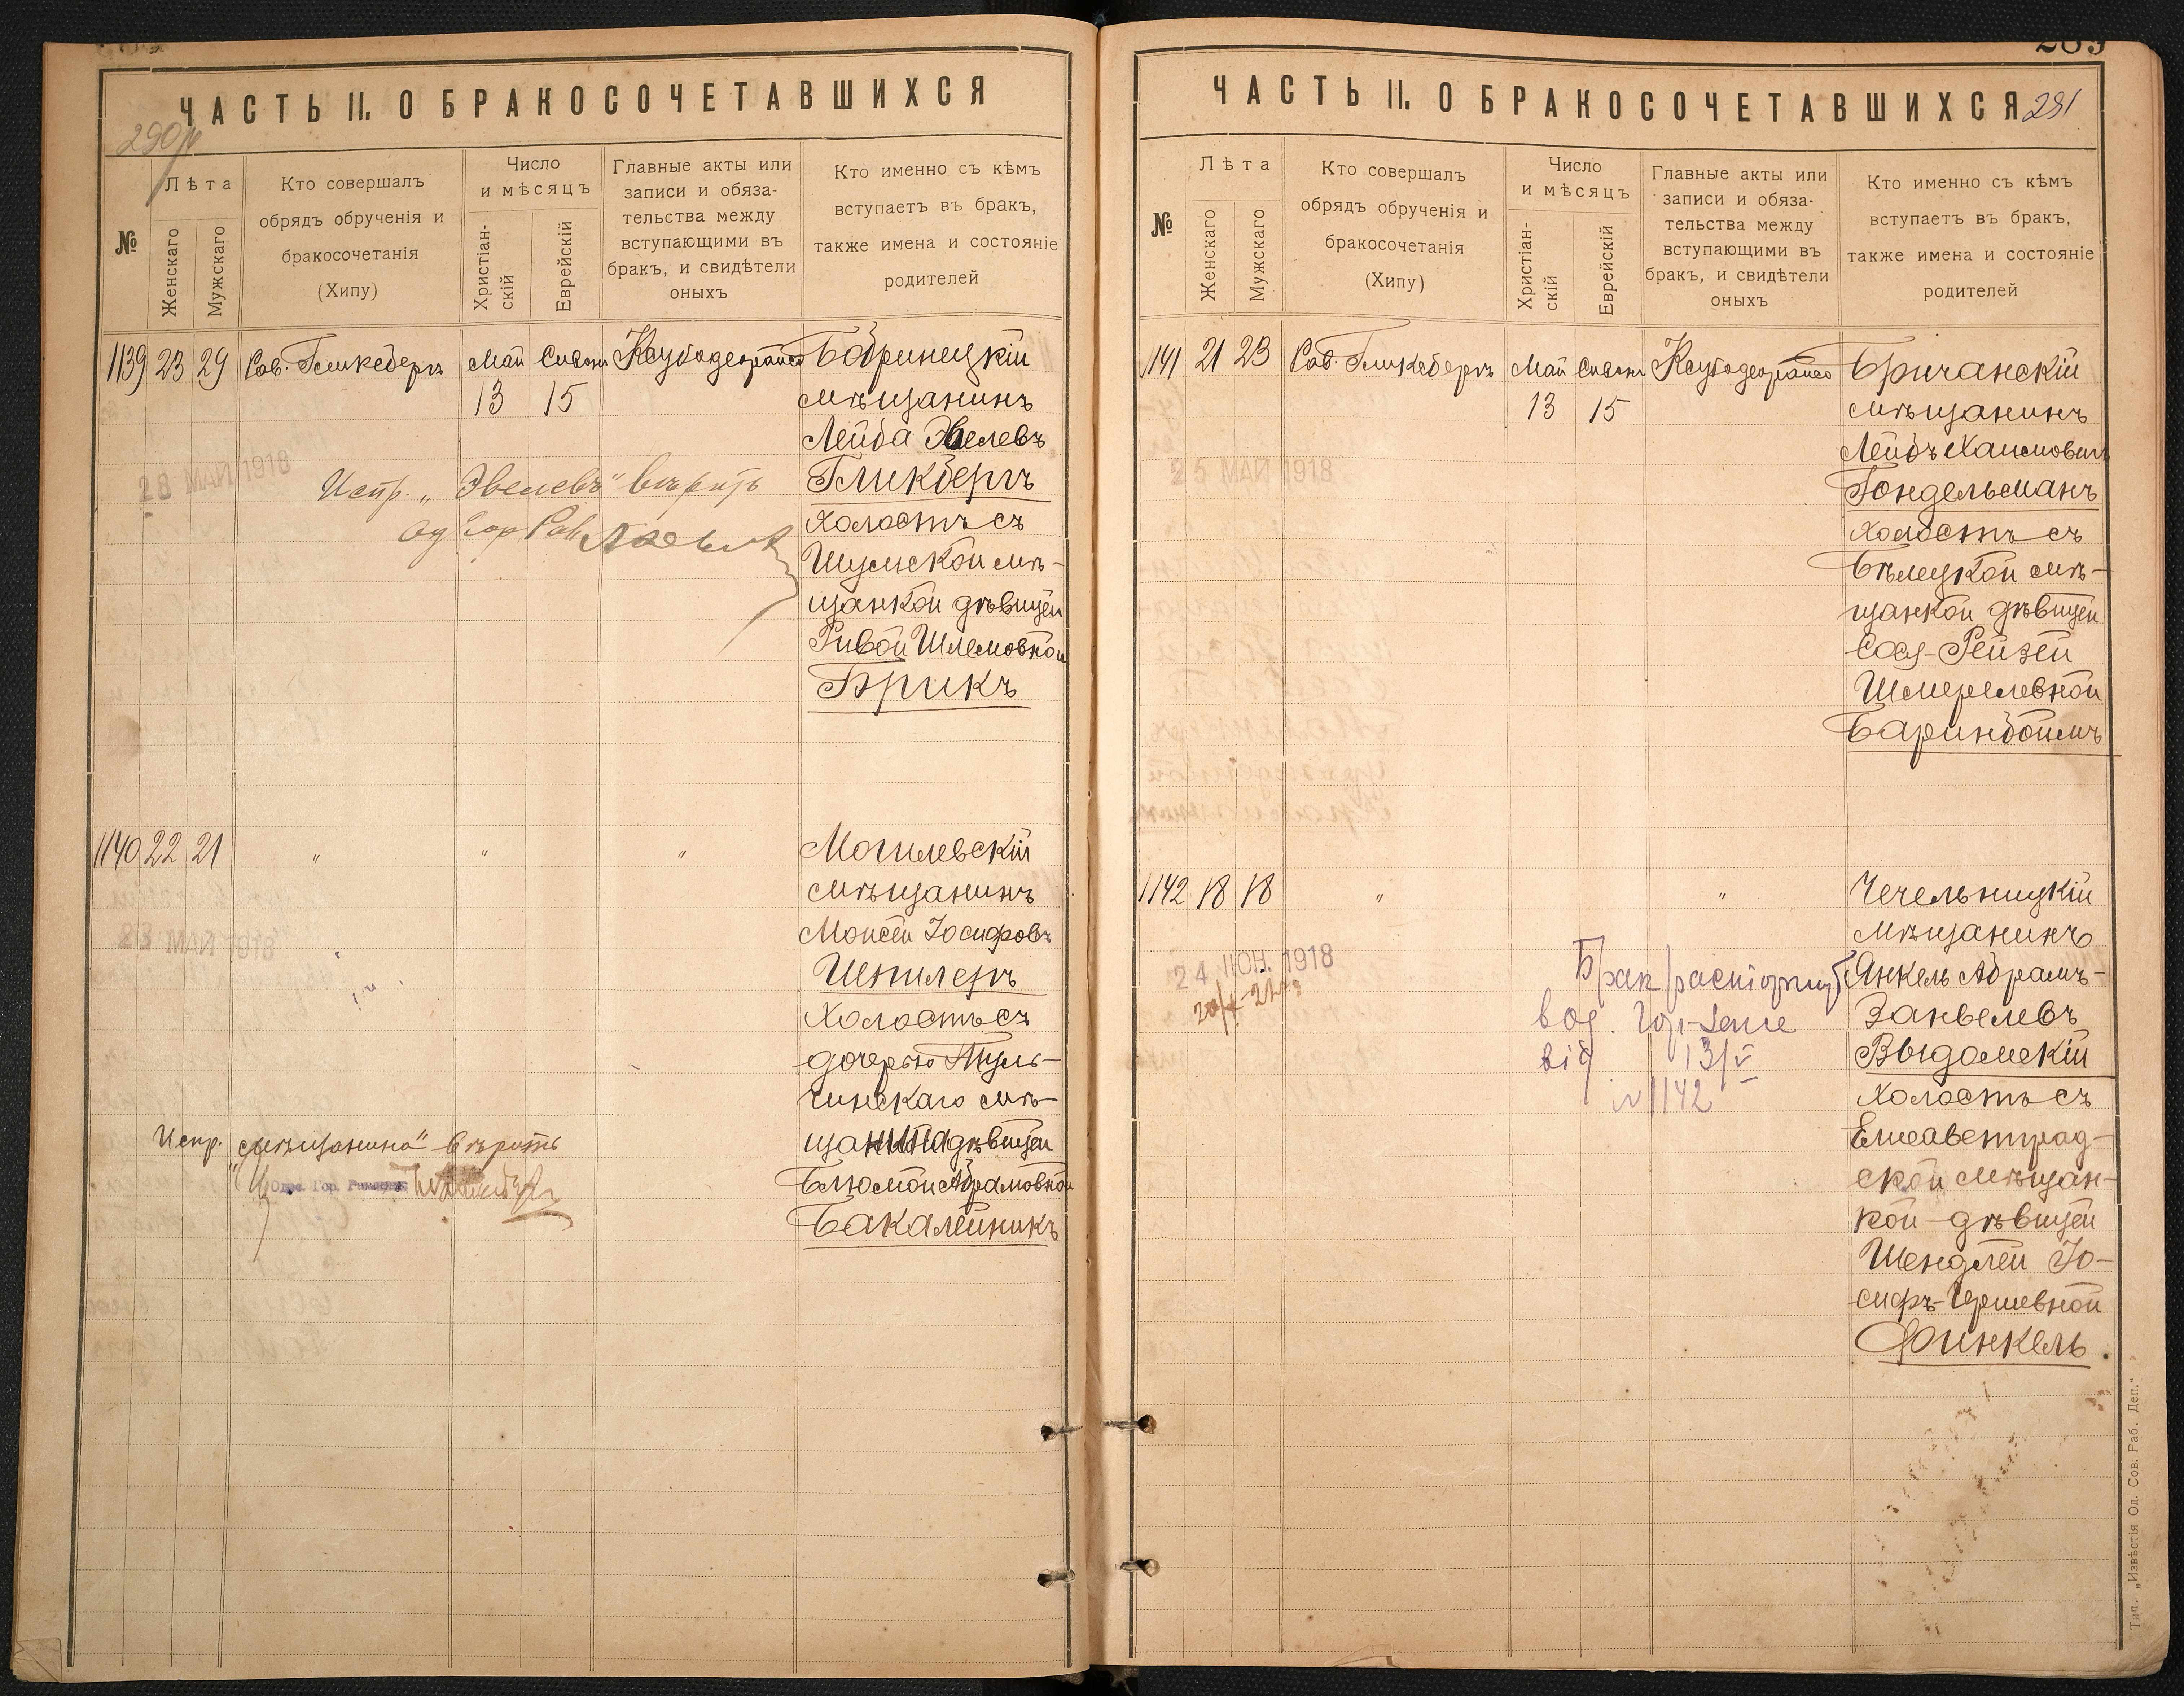 ЧАСТЬ II. О БРАКОСОЧЕТАВШИХСЯ
№
Лѣта
Женскаго
Мужскаго
Кто совершалъ
обрядъ обрученія и
бракосочетанія
(Хипу)
Число
и мѣсяцъ
Христіан-
скій
Еврейскій
Главные акты или
записи и обяза-
тельства между
вступающими въ
бракъ, и свидѣтели
оныхъ
Кто именно съ кѣмъ
вступаетъ въ бракъ,
также имена и состояніе
родителей
1139 23 29 Рав. Гликсбергъ Май 13 Сивонъ 15
Бобринецкій
мѣщанинъ
Лейба Эвелевъ
Гликбергъ
Холостъ съ
Шумской мѣ-
щанкой дѣвицей
Ривой Шлемовной
Брикъ
28 МАЙ 1918
Испр. „Эвелевъ" вѣрить
Од Гор Рав
1140 22 21 " " "
Могилевскій
мѣщанинъ
Моисей Іосифовъ
Шпилеръ
Холостъ съ
дочерью Туль-
чинскаго мѣ-
щанина дѣвицей
Блюмой Абрамовной
Бакалейникъ
23 МАЙ 1918
Испр. „мѣщанина" вѣрить
Гор.
ЧАСТЬ II. О БРАКОСОЧЕТАВШИХСЯ
291
№
Лѣта
Женскаго
Мужскаго
Кто совершалъ
обрядъ обрученія и
бракосочетанія
(Хипу)
Число
и мѣсяцъ
Христіан-
скій
Еврейскій
Главные акты или
записи и обяза-
тельства между
вступающими въ
бракъ, и свидѣтели
оныхъ
Кто именно съ кѣмъ
вступаетъ въ бракъ,
также имена и состояніе
родителей
1141 21 23 Рав. Гликсбергъ Май 13 Сивонъ 15
Бричанскій
мѣщанинъ
Лейбъ Хаимовичъ
Гондельманъ
Холостъ съ
Бѣлецкой мѣ-
щанкой дѣвицей
Сося-Рейзей
Шмерелевной
Баринбоймъ
25 МАЙ 1918
1142 18 18 " "
Чечельницкій
мѣщанинъ
Янкель Абрамъ-
Занвелевъ
Выдомскій
Холостъ съ
Елисаветград-
ской мѣщан-
кой дѣвицей
Шендлей Іо-
сифъ-Гершевной
Финкель.
24 ІЮН. 1918
від 13/V
N 1142
Тип. „Извѣстія Од. Сов. Раб. Деп."